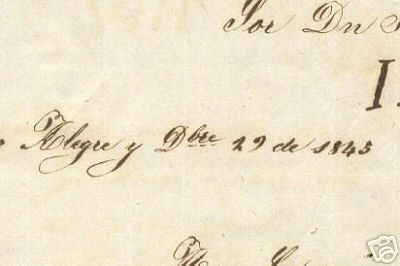 Sor Dn
I
Alegre y Dbre 29 de 1845